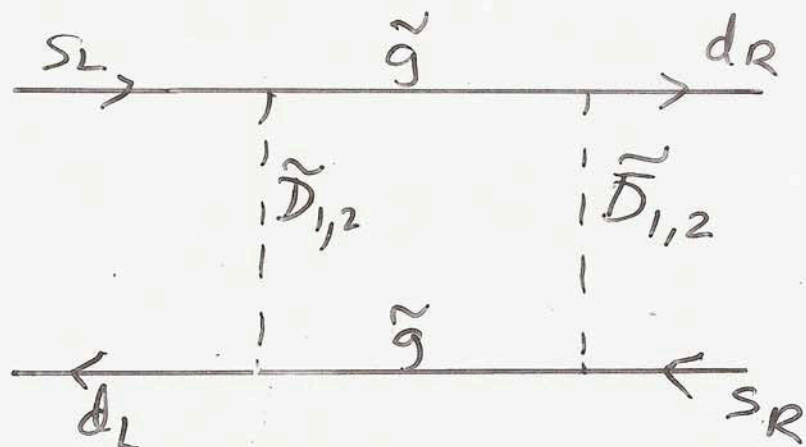 S_L g̃ d_R
D̃_{1,2} D̃̄_{1,2}
g̃
d_L s_R